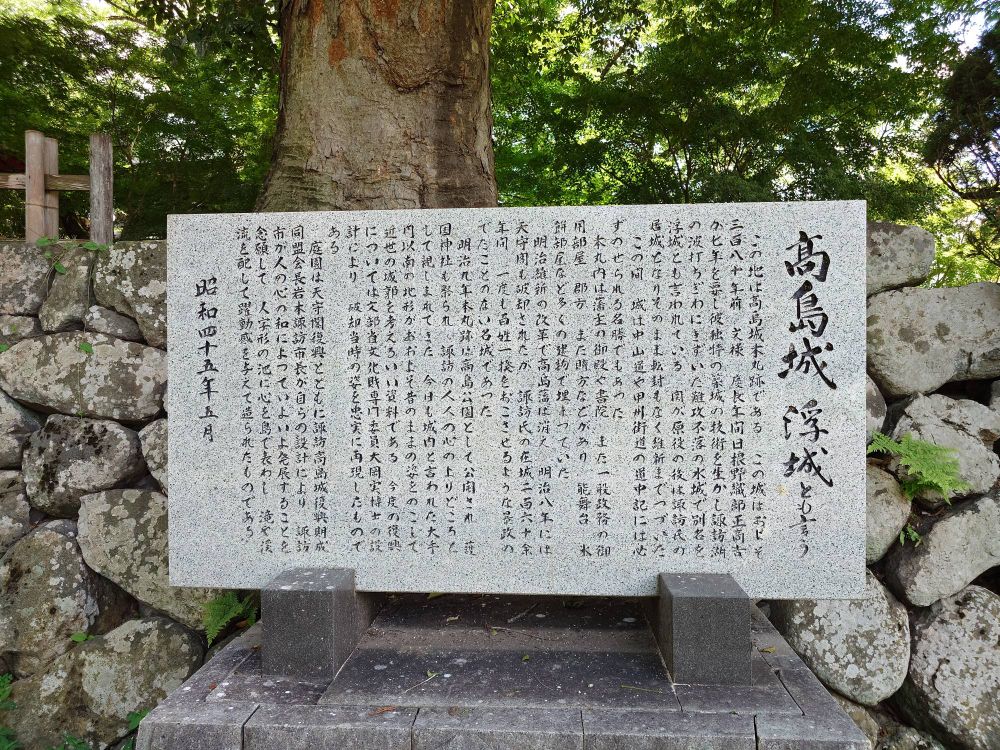 高島城 浮城とも言う
この地は高島城本丸跡である この城はおよそ
三百八十年前 文禄 慶長年間日根野織部正高吉
が七年を費し彼独特の築城の技術を生かし諏訪湖
の波打ちぎわにきずいた難攻不落の水城で別名を
浮城とも言われている 関が原役の後は諏訪氏の
居城となりそのまま転封もなく維新までつづいた
この間 城は中山道や甲州街道の道中記には必
ずのせられる名勝でもあった
本丸内は藩主の御殿や書院 また一般政務の御
用部屋 郡方 また時方などがあり 能舞台 氷
餅部屋など多くの建物で埋まっていた
明治維新の改革で高島藩は消え 明治八年には
天守閣も破却されたが 諏訪氏の在城二百六十余
年間 一度も百姓一揆をおこさせるような苛政の
でたことのない名城であった
明治九年本丸跡は高島公園として公開され 護
国神社も祭られ 諏訪の人人の心のよりどころと
して親しまれてきた 今日も城内と言われた大手
門以南の地形がおおよそ昔のままの姿をのこして
近世の城郭を考えるいい資料である 今度の復興
については文部省文化財専門委員大岡実博士の設
計により 破却当時の姿を忠実に再現したもので
ある
庭園は天守閣復興とともに諏訪高島城復興期成
同盟会長岩本諏訪市長が自らの設計により 諏訪
市が人の心の和によっていよいよ発展することを
念願して 人字形の池に心を島で表わし 滝や渓
流を配して躍動感を与えて造られたものである
昭和四十五年五月